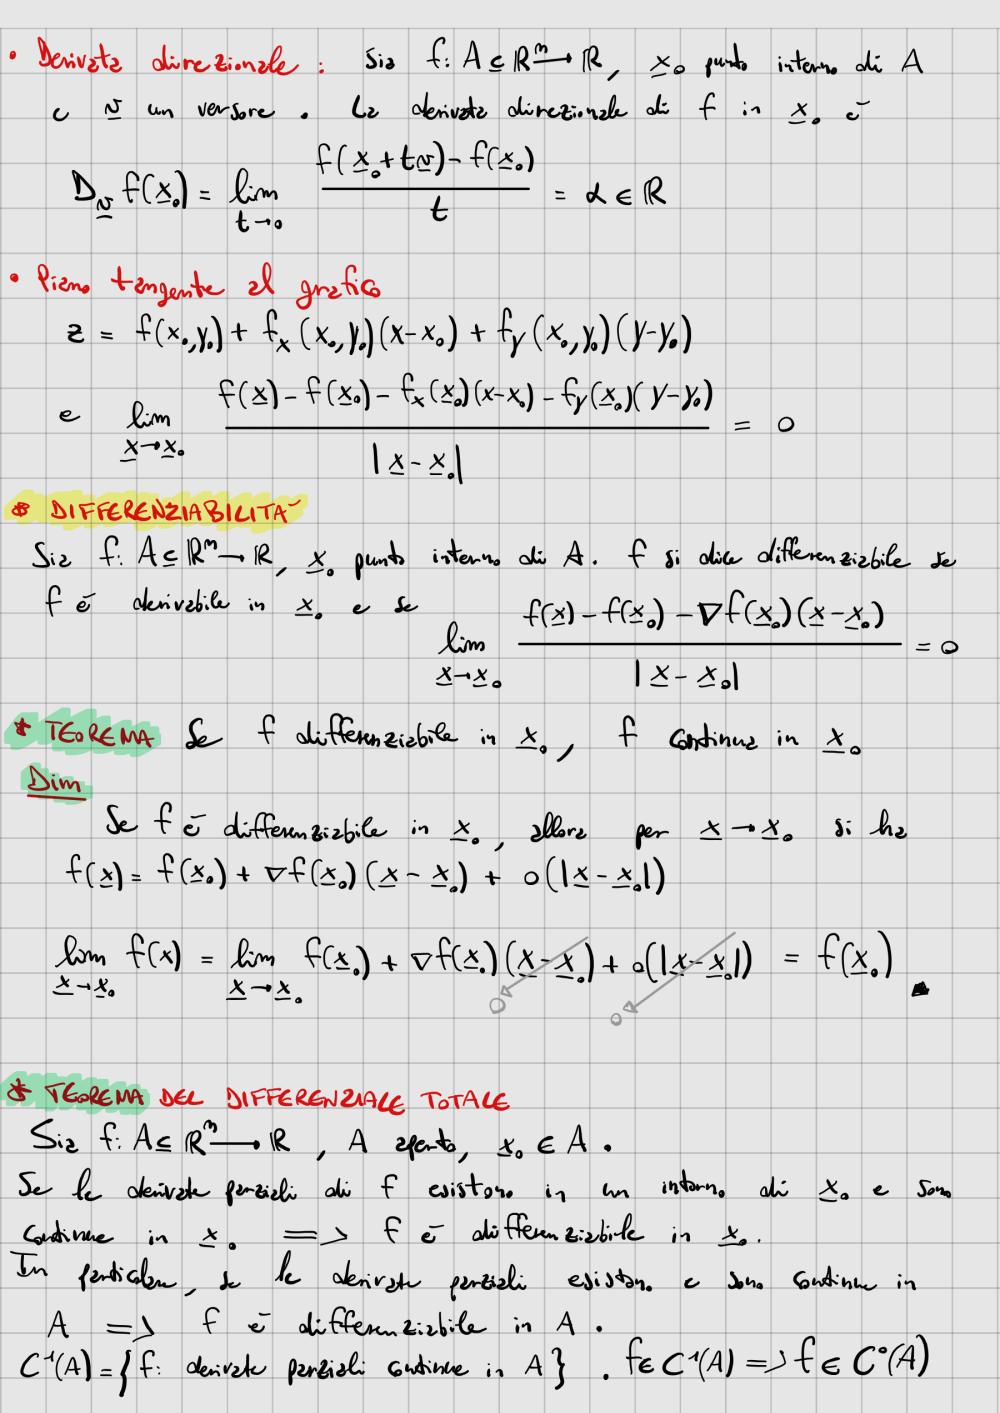 • Derivata direzionale : Sia f: A ⊆ ℝⁿ → ℝ, x̲₀ punto interno di A
e v̲ un versore . La derivata direzionale di f in x̲₀ è
D_v̲ f(x̲₀) = lim_{t→0} (f(x̲₀+tv̲) - f(x̲₀)) / t = α ∈ ℝ
• Piano tangente al grafico
z = f(x₀,y₀) + f_x (x₀,y₀)(x-x₀) + f_y (x₀,y₀)(y-y₀)
e lim_{x̲→x̲₀} (f(x̲) - f(x̲₀) - f_x(x̲₀)(x-x₀) - f_y(x̲₀)(y-y₀)) / |x̲-x̲₀| = 0
* DIFFERENZIABILITÀ
Sia f: A ⊆ ℝⁿ → ℝ, x̲₀ punto interno di A. f si dice differenziabile se
f è derivabile in x̲₀ e se lim_{x̲→x̲₀} (f(x̲) - f(x̲₀) - ∇f(x̲₀)(x̲-x̲₀)) / |x̲-x̲₀| = 0
* TEOREMA Se f differenziabile in x̲₀, f continua in x̲₀
Dim
Se f è differenziabile in x̲₀, allora per x̲→x̲₀ si ha
f(x̲) = f(x̲₀) + ∇f(x̲₀)(x̲-x̲₀) + o(|x̲-x̲₀|)
lim_{x̲→x̲₀} f(x) = lim_{x̲→x̲₀} f(x̲₀) + ∇f(x̲₀)(x̲-x̲₀) + o(|x̲-x̲₀|) = f(x̲₀)
0 0
* TEOREMA DEL DIFFERENZIALE TOTALE
Sia f: A ⊆ ℝⁿ → ℝ , A aperto, x̲₀ ∈ A .
Se le derivate parziali di f esistono in un intorno di x̲₀ e sono
continue in x̲₀ => f è differenziabile in x̲₀.
In particolare, se le derivate parziali esistono e sono continue in
A => f è differenziabile in A .
C¹(A) = { f: derivate parziali continue in A } . f ∈ C¹(A) => f ∈ C⁰(A)